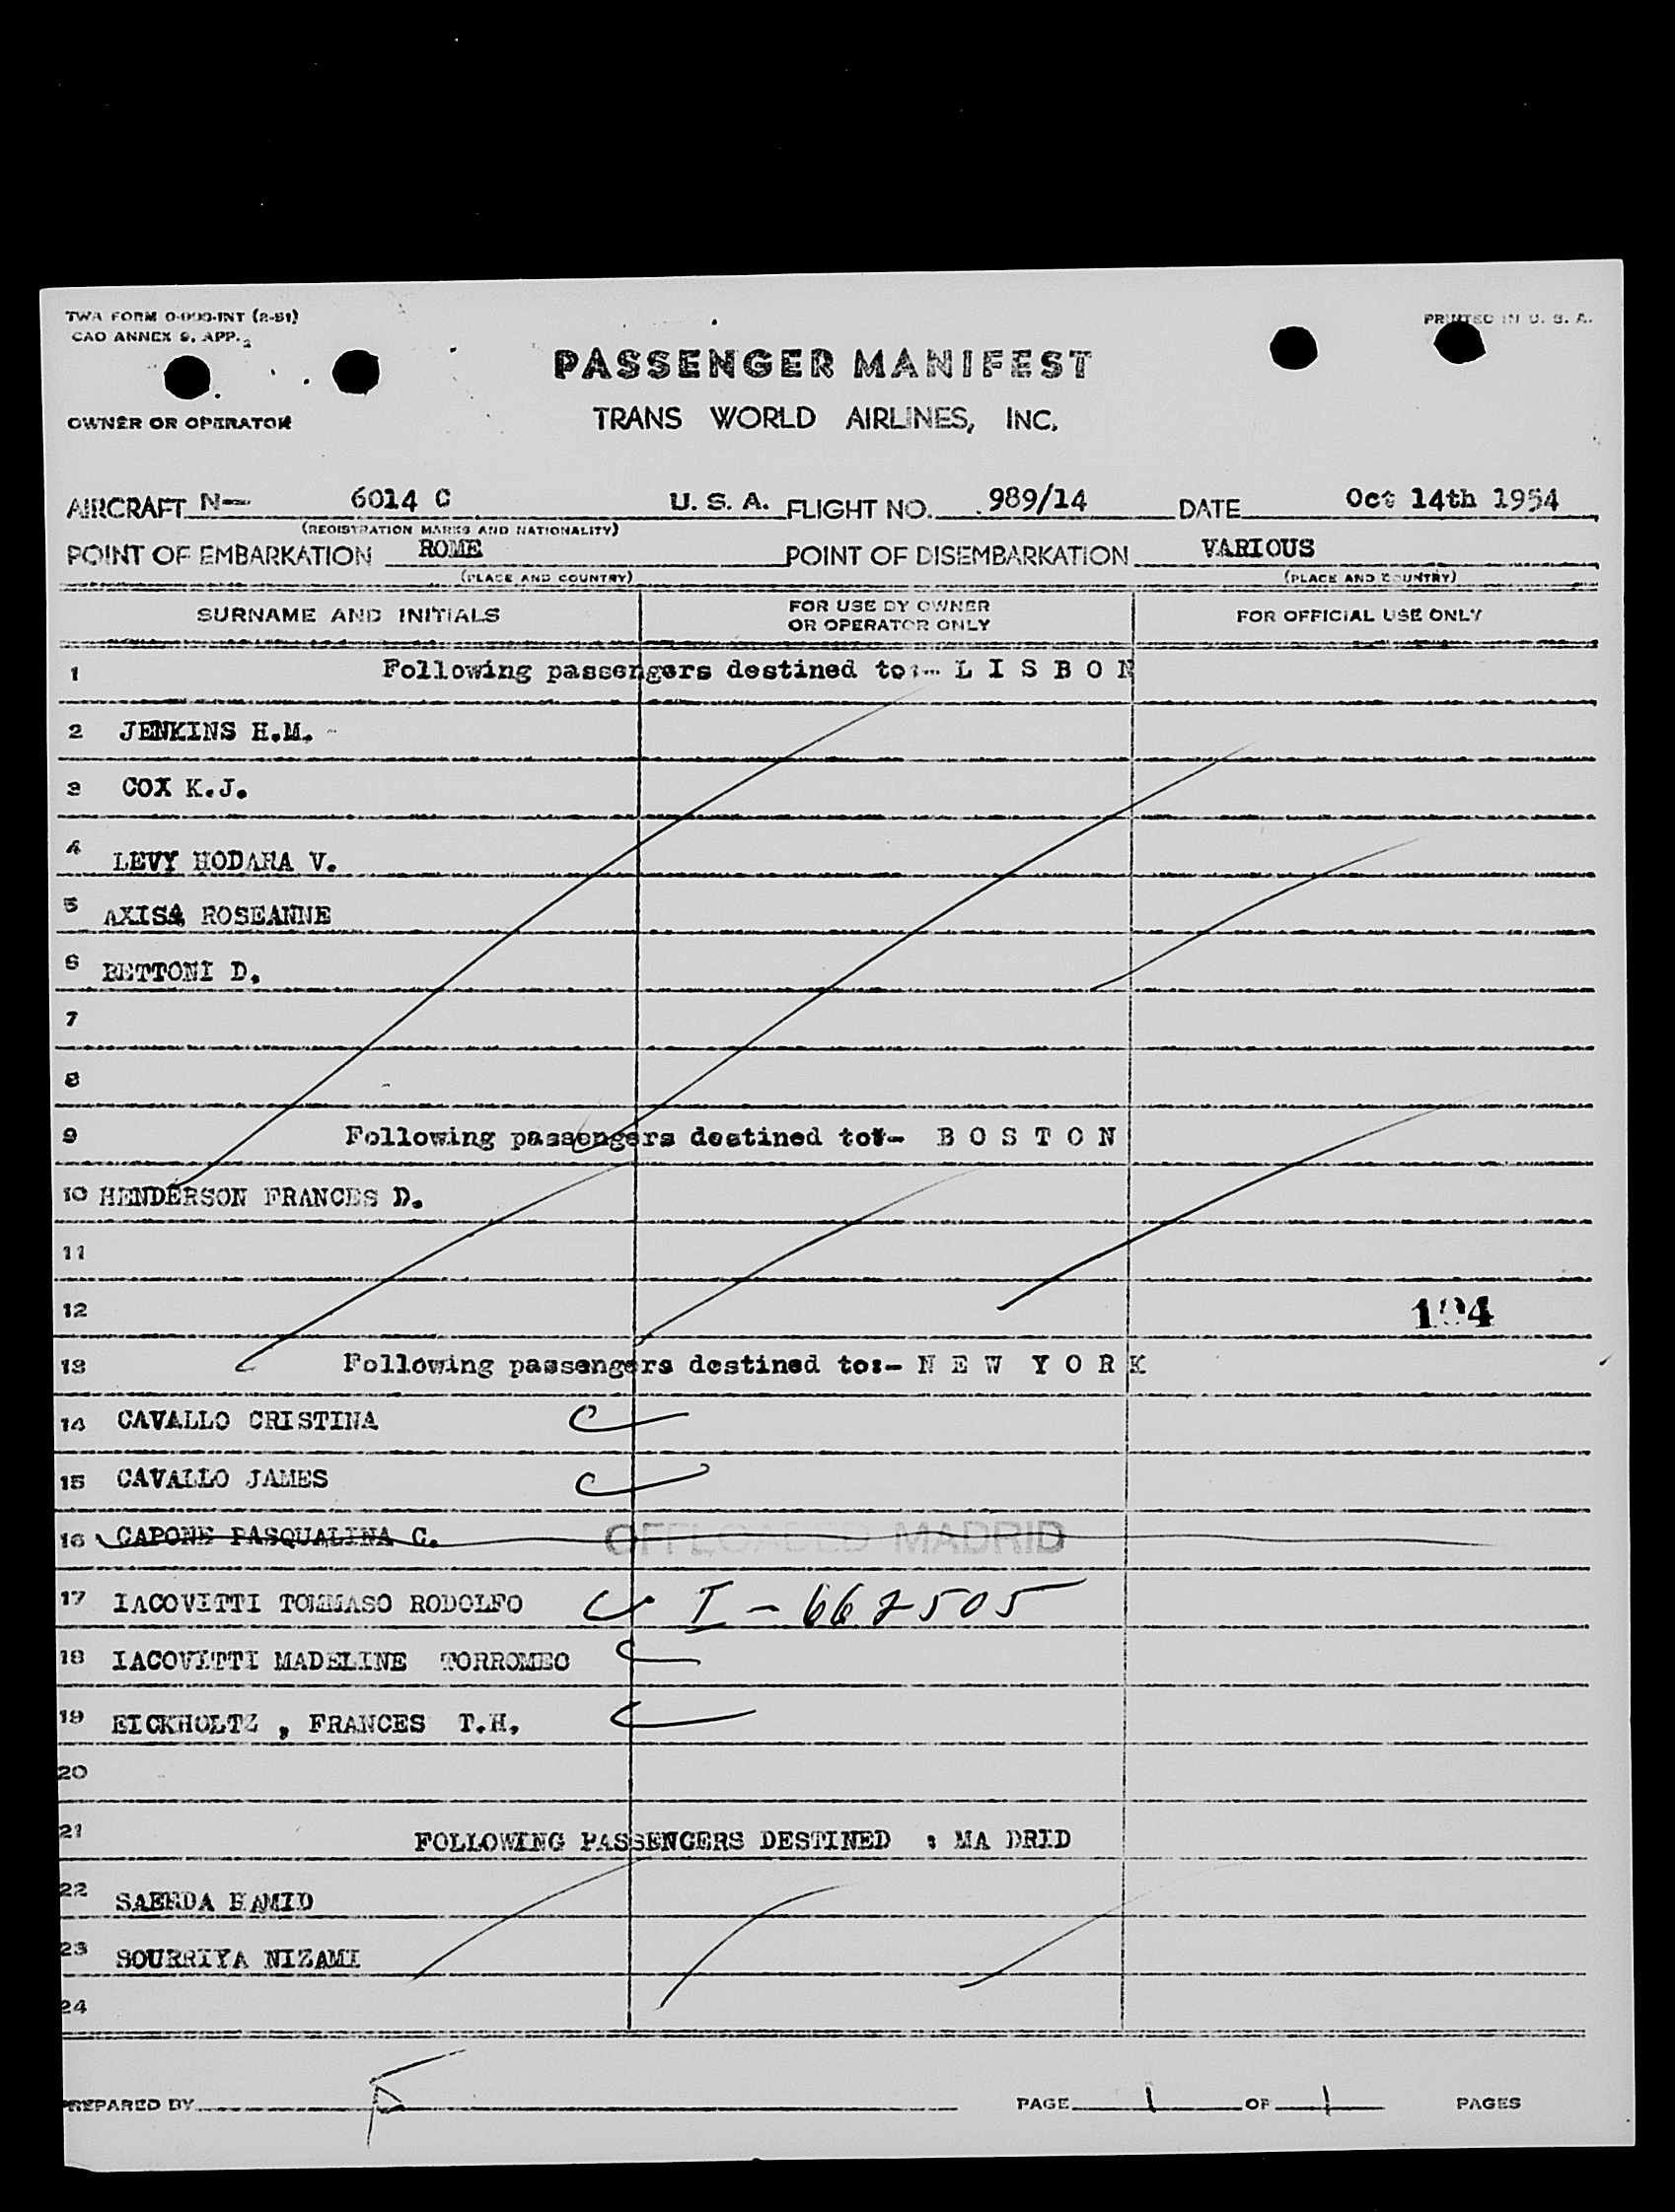 TWA FORM O-900-INT (2-51)
CAO ANNEX 9, APP. 2
PRINTED IN U. S. A.
PASSENGER MANIFEST
OWNER OR OPERATOR
TRANS WORLD AIRLINES, INC.
AIRCRAFT N— 6014 C U. S. A. FLIGHT NO. 989/14 DATE Oct 14th 1954
(REGISTRATION MARKS AND NATIONALITY)
POINT OF EMBARKATION ROME POINT OF DISEMBARKATION VARIOUS
(PLACE AND COUNTRY) (PLACE AND COUNTRY)
SURNAME AND INITIALS FOR USE BY OWNER OR OPERATOR ONLY FOR OFFICIAL USE ONLY
1 Following passengers destined to:- L I S B O N
2 JENKINS H.M.
3 COX K.J.
4 LEVY HODARA V.
5 AXISA ROSEANNE
6 BETTONI D.
7
8
9 Following passengers destined to:- B O S T O N
10 HENDERSON FRANCES D.
11
12
13 Following passengers destined to:- N E W Y O R K
14 CAVALLO CRISTINA
15 CAVALLO JAMES
16 CAPONE PASQUALINA C. OFFLOADED MADRID
17 IACOVITTI TOMMASO RODOLFO I - 662505
18 IACOVITTI MADELINE TORROMEO
19 EICKHOLTZ , FRANCES T.H.
20
21 FOLLOWING PASSENGERS DESTINED : MA DRID
22 SAEEDA HAMID
23 SOURRIYA NIZAMI
24
PREPARED BY PAGE 1 OF 1 PAGES